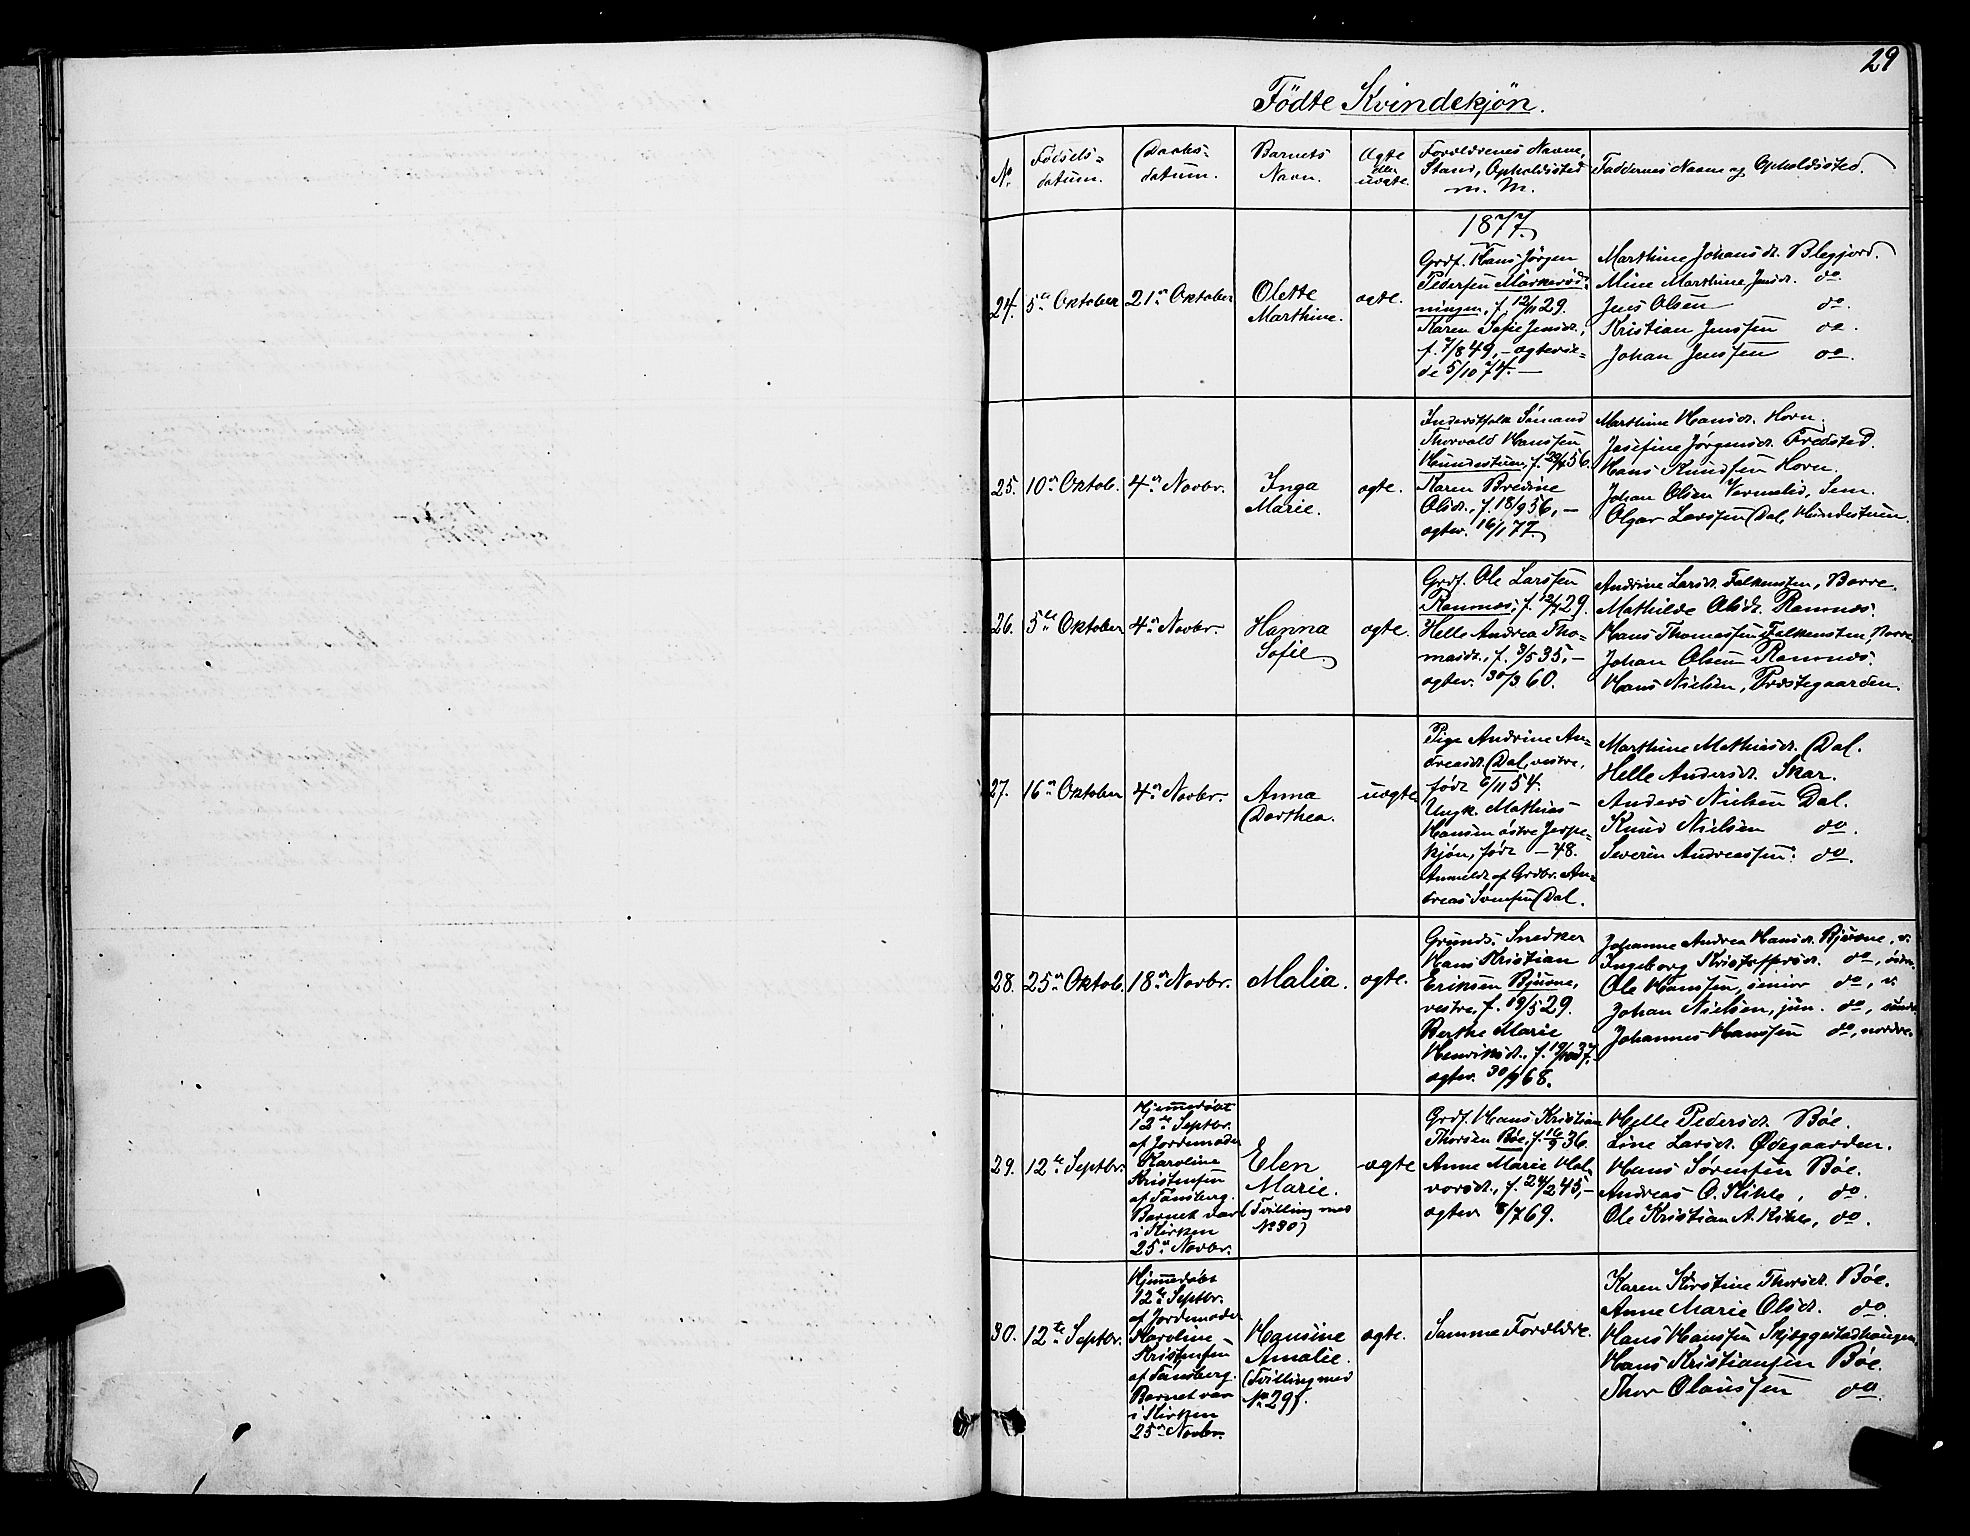 29
Fødte Kvindekjøn.
No.
Fødsels=
datum.
Daabs=
datum.
Barnets
Navn.
Ægte
eller
uægte.
Forældrenes Navne,
Stand, Opholdssted
m. m.
Faddernes Navne og Opholdssted.
1877.
24.
5te Oktober
21de Oktober
Olette
Marthine.
ægte.
Grdf. Hans Jørgen
Pedersen
ningen, f. 12/11 29.
Karen Sofie Jensdt.,
f. 7/8 49, – ægtevie=
de 5/10 74. –
Marthine Johansdt. Blegjord.
Mine Marthine Jensdt. do
Jens Olsen do.
Kristian Jenssen do.
Johan Jenssen do.
25.
10de Oktob.
4de Novbr.
Inga
Marie.
ægte.
Inderstfolk Sømand
Thorvald Hanssen
Hundestuen, f. 56.
Karen Bredine
Olsdt., f. 18/9 56, –
ægtev. 16/1 77.
Marthine Hansdt. Horn.
Josefine Jørgensdt. Fredsted.
Hans Knudssen Horn.
Johan Olsen Vermelid, Sem.
Olgar Larssen Dal, Hundestuen.
26.
5te Oktober
4de Novbr.
Hanna
Sofie.
ægte.
Grdf. Ole Larssen
Ramnæs, f. 29.
Helle Andrea Tho=
masdt., f. 3/5 35, –
ægtev. 30/3 60.
Andrine Larsdt. Falkensten, Borre.
Mathilde Olsdt. Ramnæs.
Hans Thomassen Falkensten, Borre
Johan Olsen Ramnæs.
Hans Nielsen, Præstegaarden.
27.
16de Oktober
4de Novbr.
Anna
Dorthea.
uægte
Pige Andrine An=
dreasdt. Dal, vestre,
født 6/11 54.
Ungk. Mathias
Hansen østre Jerpe=
kjøn, født – 48.
Anmeldt af Grdbr. An=
dreas Svensen Dal.
Marthine Mathiasdt. Dal.
Helle Andersdt. Skar.
Anders Nielsen Dal.
Knud Nielsen do.
Severin Andreassen. do.
28.
25de Oktob.
18de Novbr.
Malia.
ægte.
Grunds. Snedker
Hans Kristian
Eriksen Bjuone,
vestre, f. 19/5 29.
Berthe Marie
Henriksdt., f. 19/10 37,
ægtev. 30/9 68.
Johanne Andrea Hansdt. Bjuone, v.
Ingeborg Kristoffersdt. do, østre.
Ole Hanssen, senior do, v.
Johan Nielsen, jun. do, søndre
Johannes Hanssen do, nordre.
29.
12te Septbr.
Hjemmedøbt
12te Septbr.
af Jordemoder
Karoline
Kristensen
af Tønsberg.
Barnet var
i Kirken
25de Novbr.
Elen
Marie.
(Tvilling med
No 30)
ægte
Grdf. Hans Kristian
Thorsen Bøe, f. 16/9 36.
Anne Marie Hal=
vorsdt., f. 24/2 45, –
ægtev. 8/7 69.
Helle Pedersdt. Bøe.
Line Larsdt. Ødegaarden.
Hans Sørensen Bøe.
Andreas O. Kihle, do.
Ole Kristian A. Kihle, do.
30.
12te Septbr.
Hjemmedøbt
12te Septbr.
af Jordemoder
Karoline
Kristensen
af Tønsberg.
Barnet var
i Kirken
25de Novbr.
Hansine
Amalie.
(Tvilling med
No 29).
ægte.
Samme Forældre.
Karen Kirstine Thorsdt. Bøe.
Anne Marie Olsdt. do
Hans Hanssen Skjæggestadhaugen
Hans Kristiansen Bøe.
Thor Olaussen do.